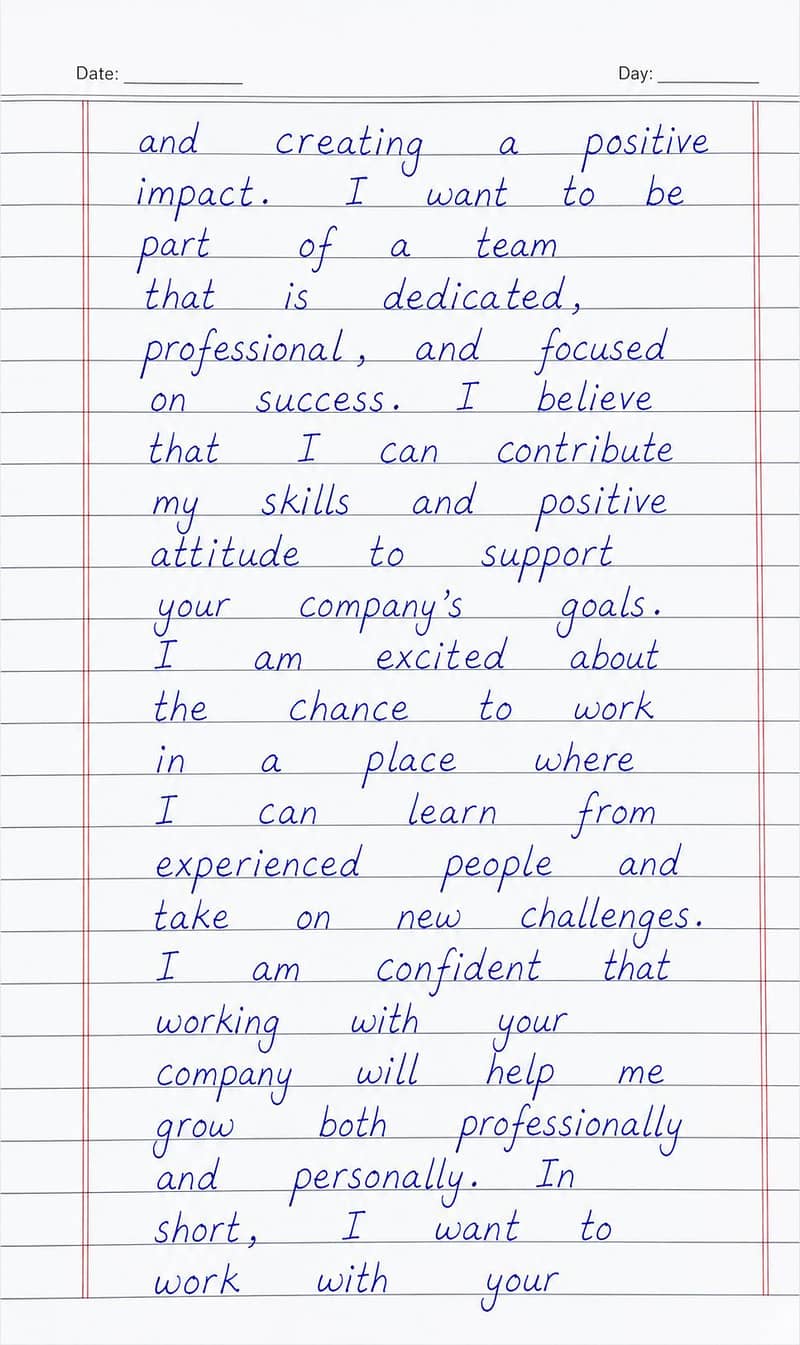 Date: Day:
and creating a positive
impact. I want to be
part of a team
that is dedicated,
professional, and focused
on success. I believe
that I can contribute
my skills and positive
attitude to support
your company's goals.
I am excited about
the chance to work
in a place where
I can learn from
experienced people and
take on new challenges.
I am confident that
working with your
company will help me
grow both professionally
and personally. In
short, I want to
work with your